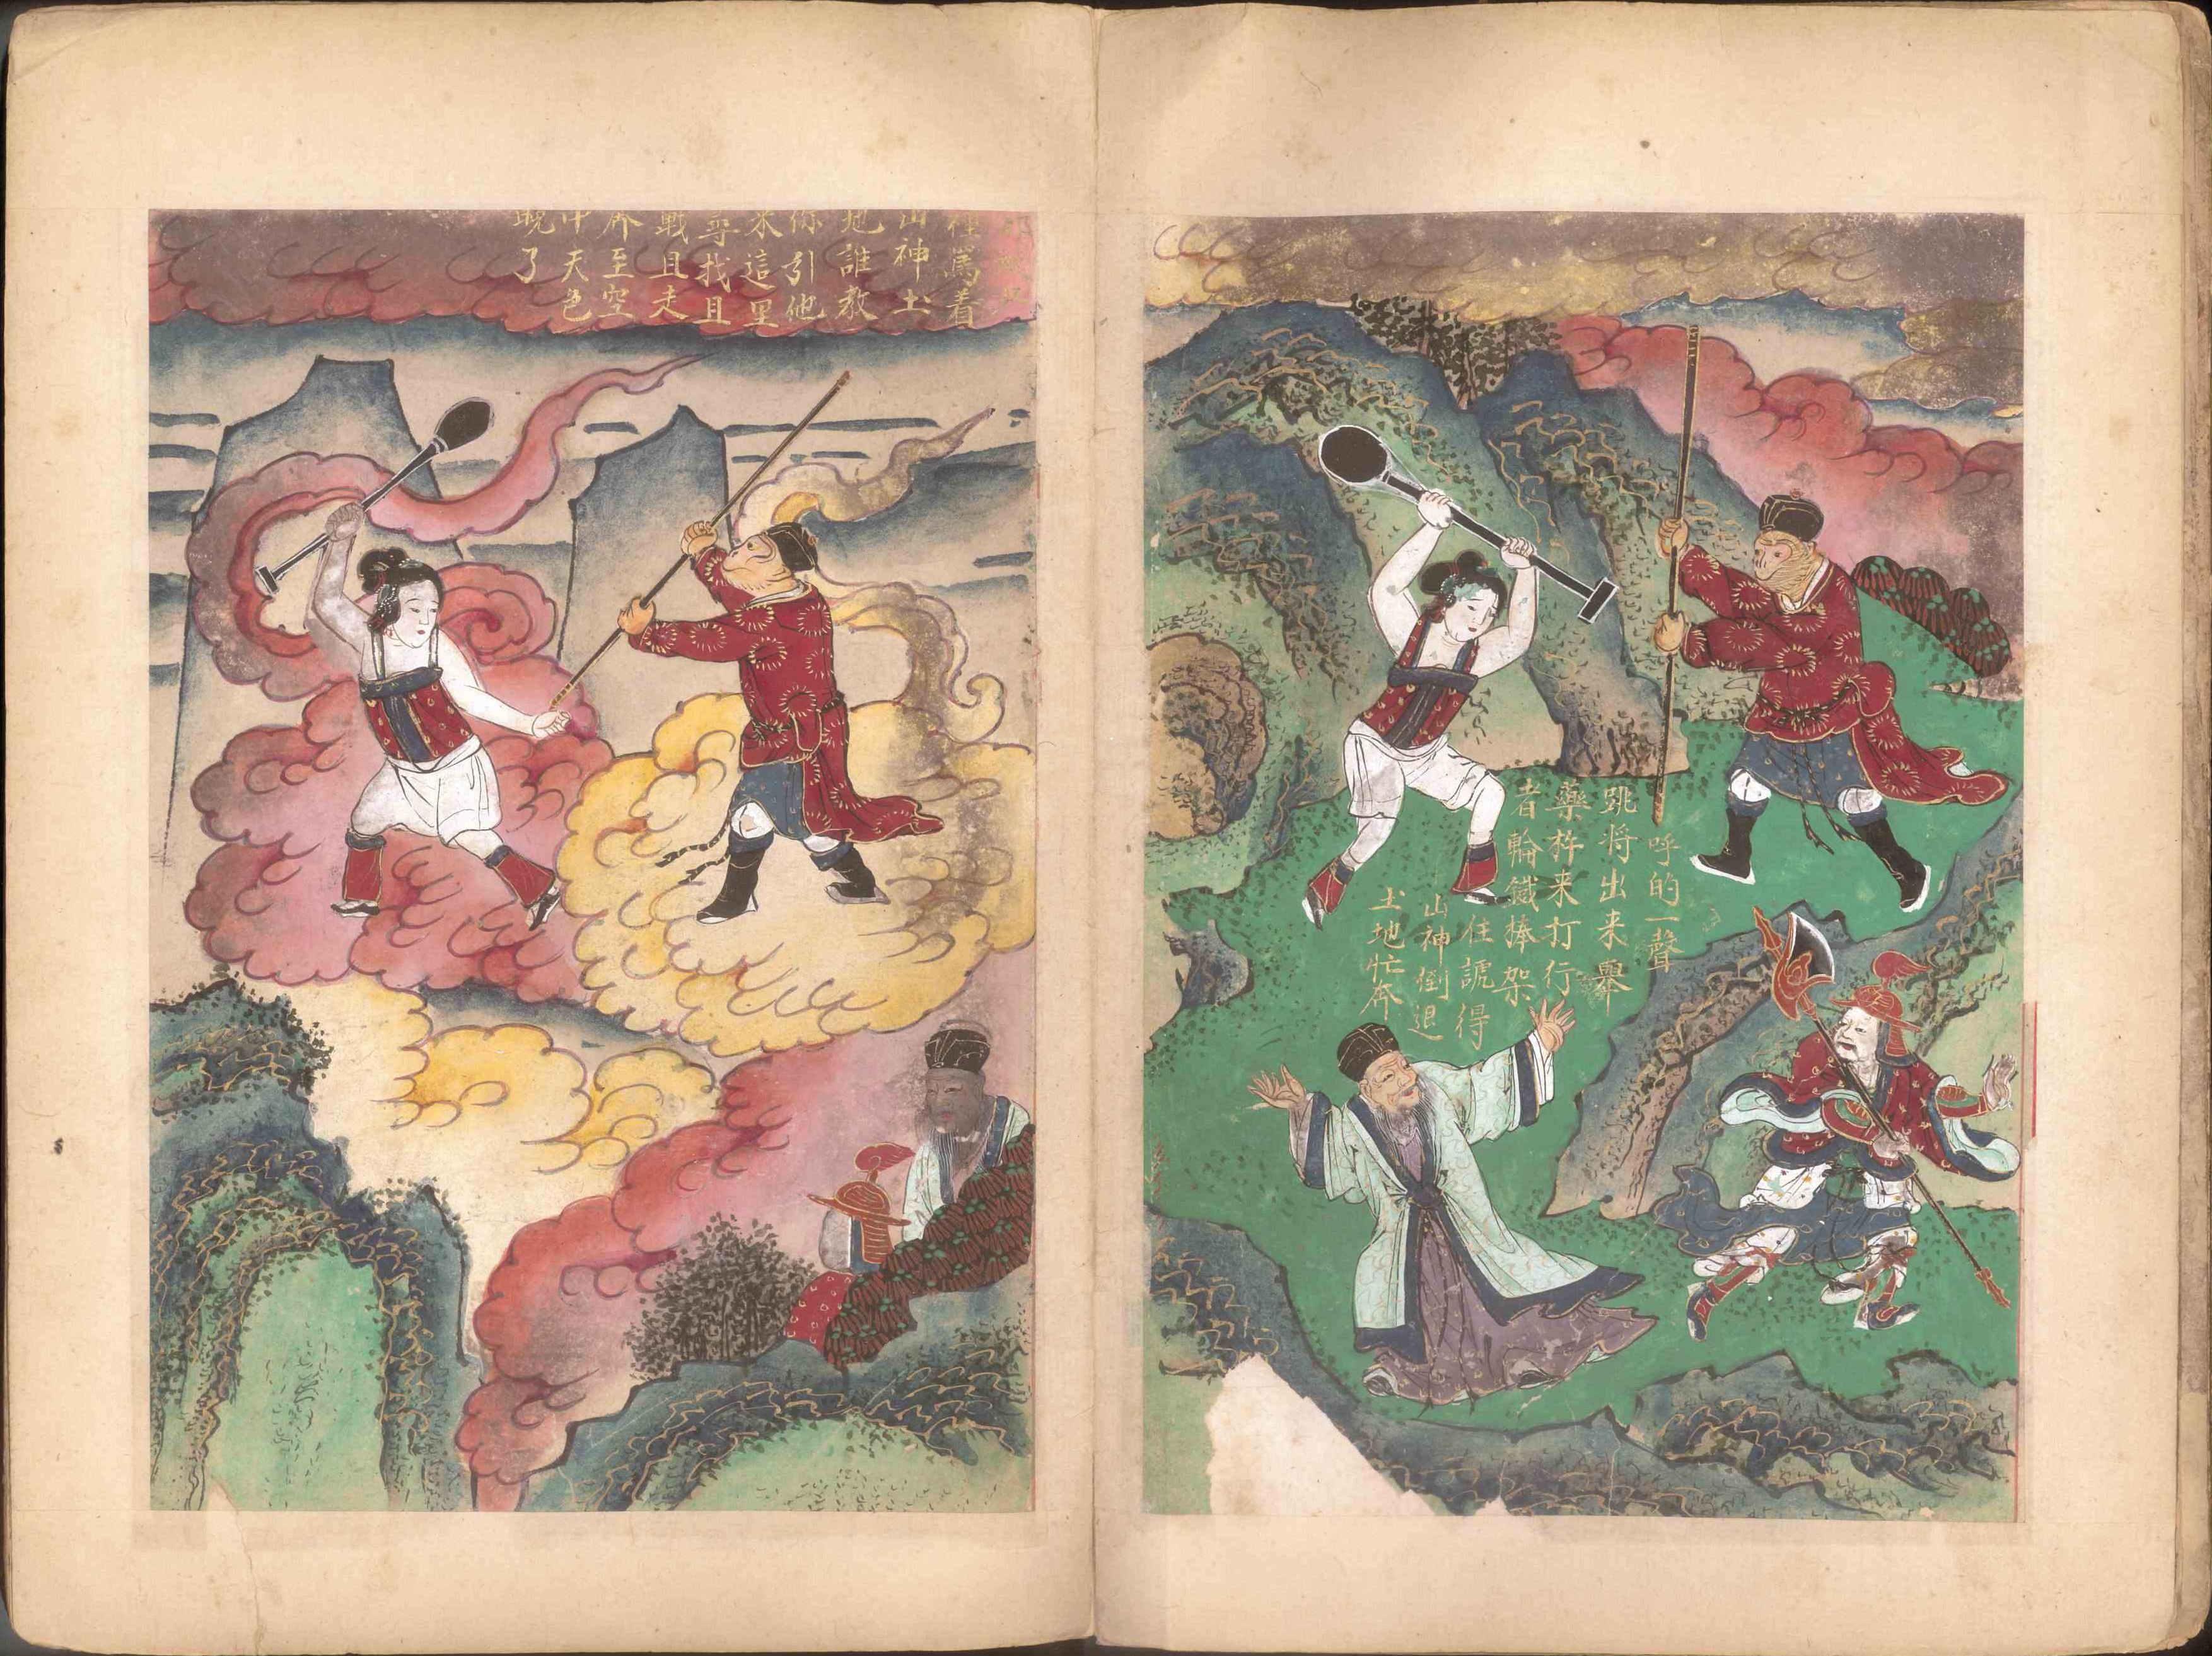 呼的一聲
跳将出来舉
藥杵来打行
者輪鐵捧架
住諕得
山神倒退
土地忙奔
裡罵着
山神土
地誰教
你引他
來這里
尋找且
戰且走
奔至空
中天色
晚了